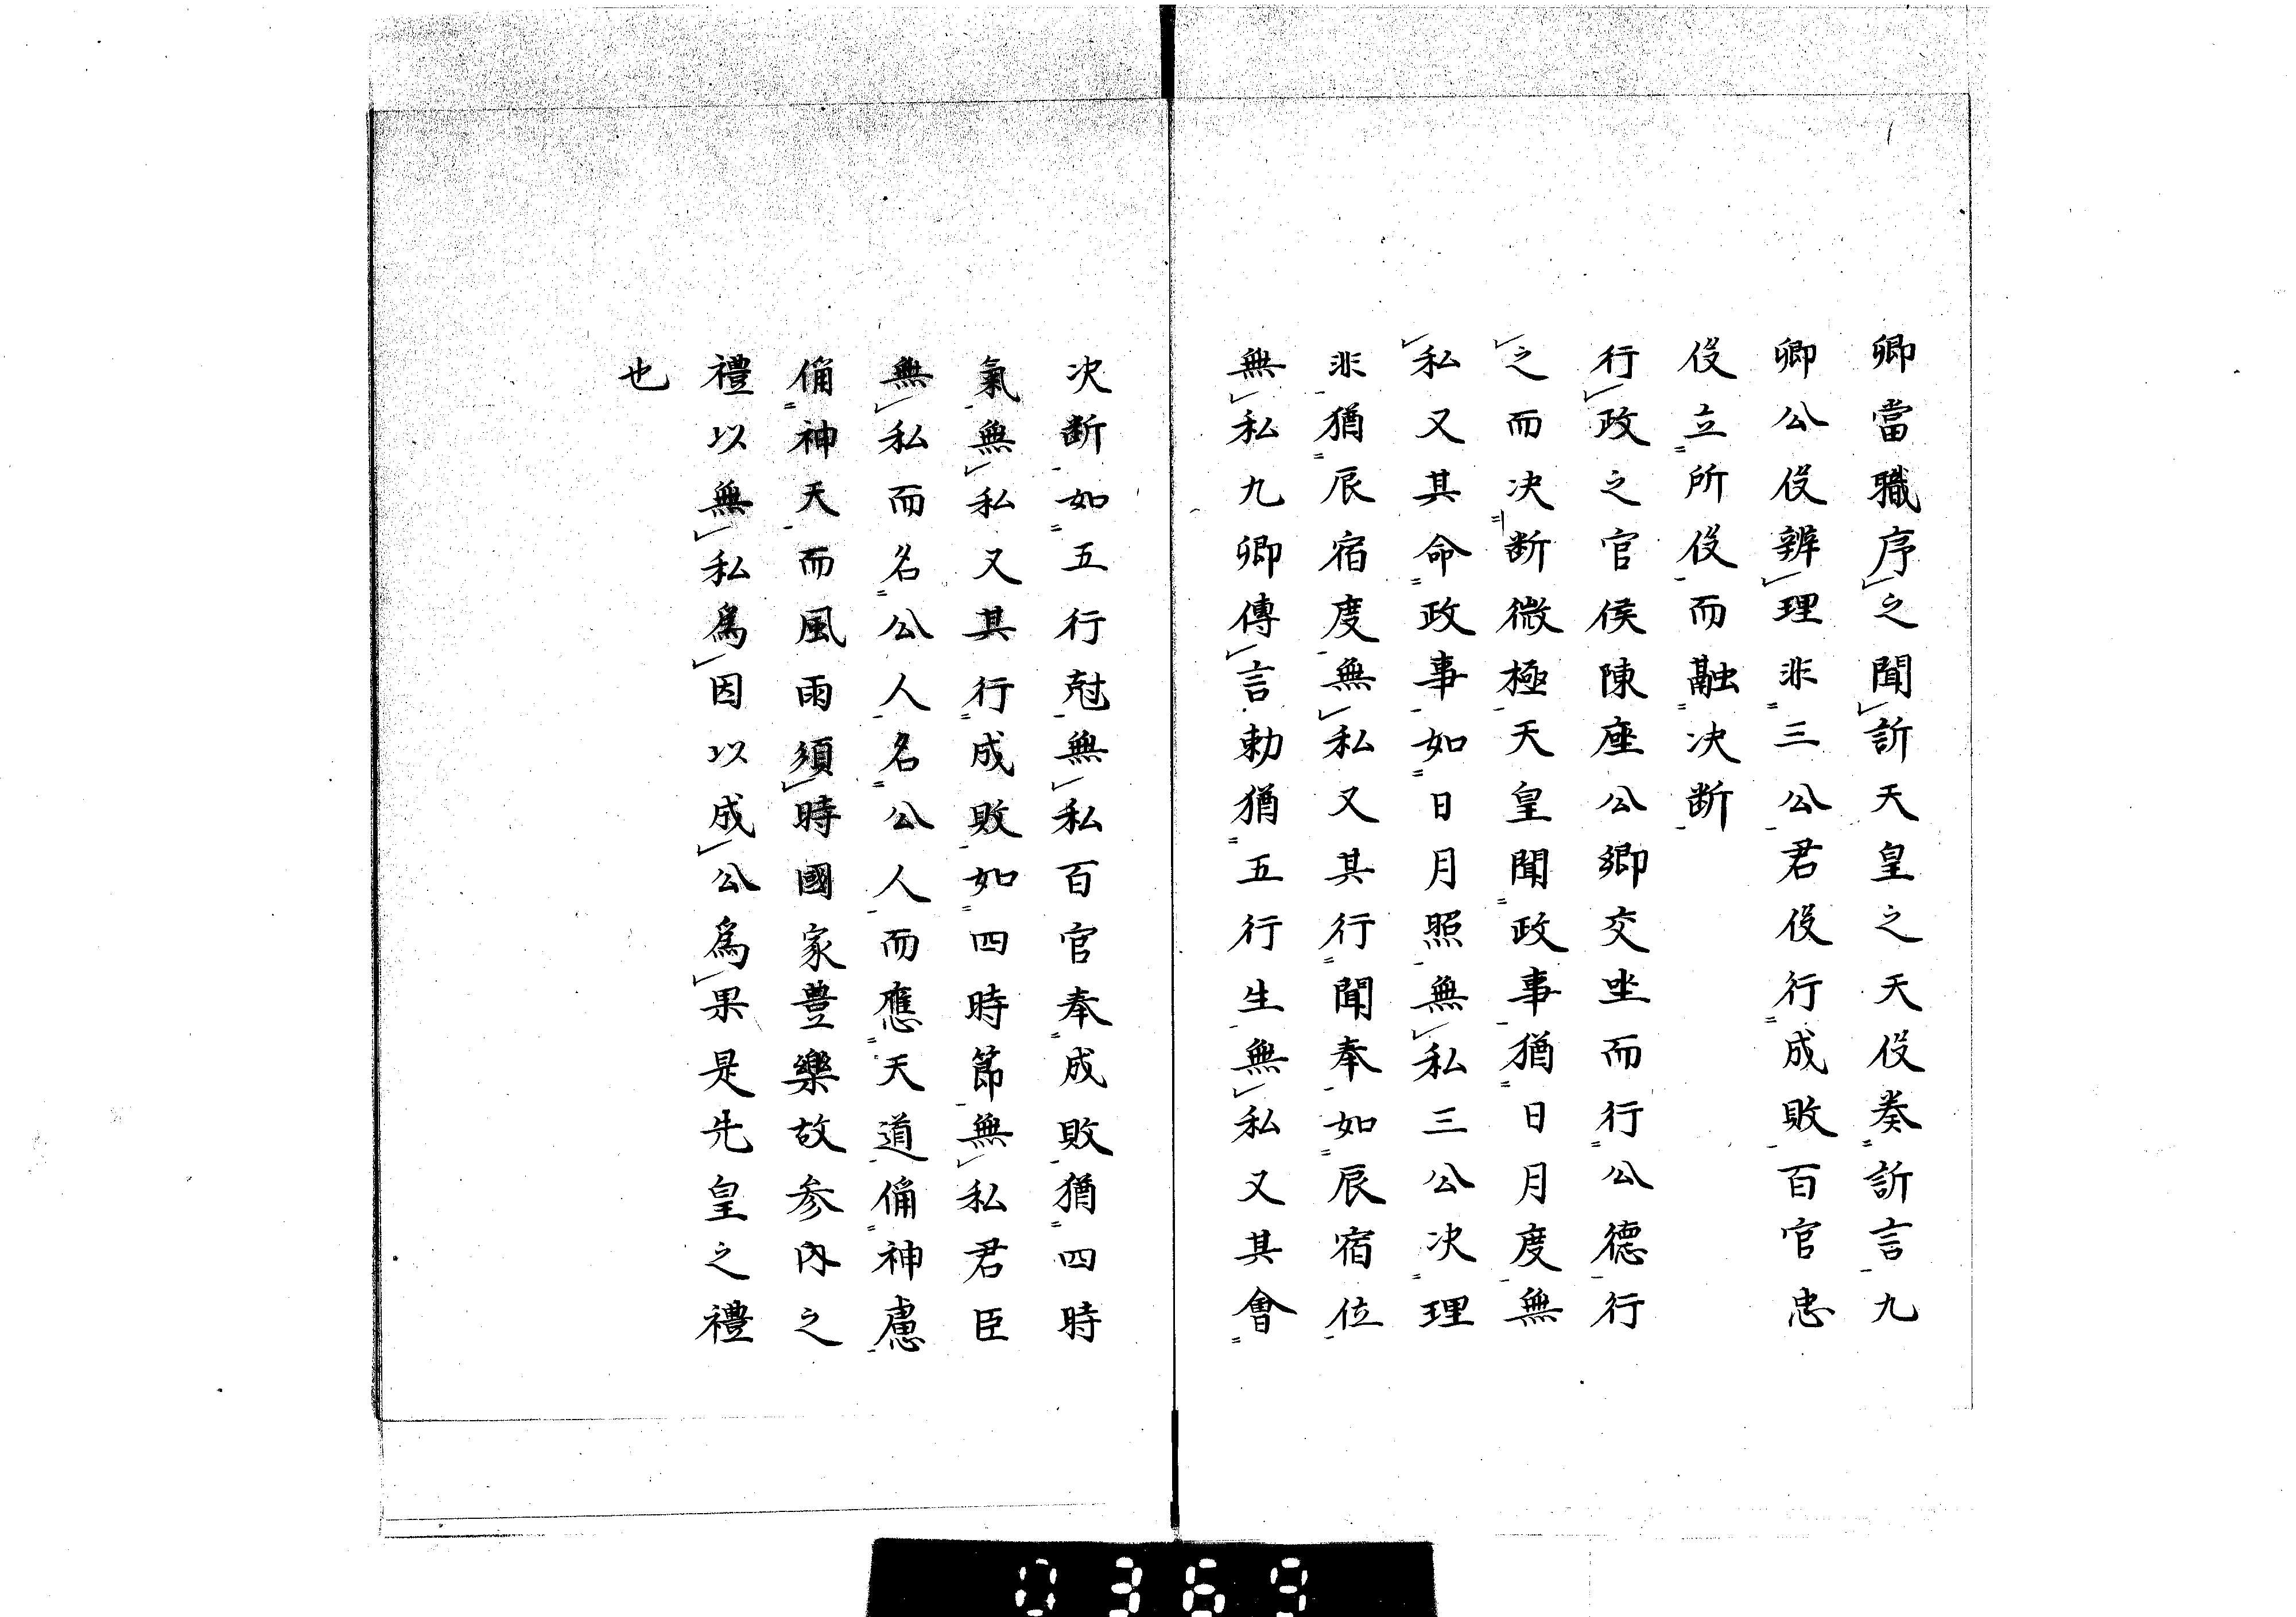 卿當職序之聞訢天皇之天役奏訢言九
卿公役辨理非三公君役行成敗百官忠
役立所役而融决斷
行政之官侯陳座公卿交坐而行公德行
之而决断微極天皇聞政事猶日月度無
私又其命政事如日月照無私三公决理
非猶辰宿度無私又其行聞奉如辰宿位
無私九卿傳言勅猶五行生無私又其會
次断如五行尅無私百官奉成敗猶四時
氣無私又其行成敗如四時節無私君臣
無私而名公人名公人而應天道俻神慮
俻神天而風雨須時國家豊樂故参内之
禮以無私爲因以成公爲果是先皇之禮
也
0369